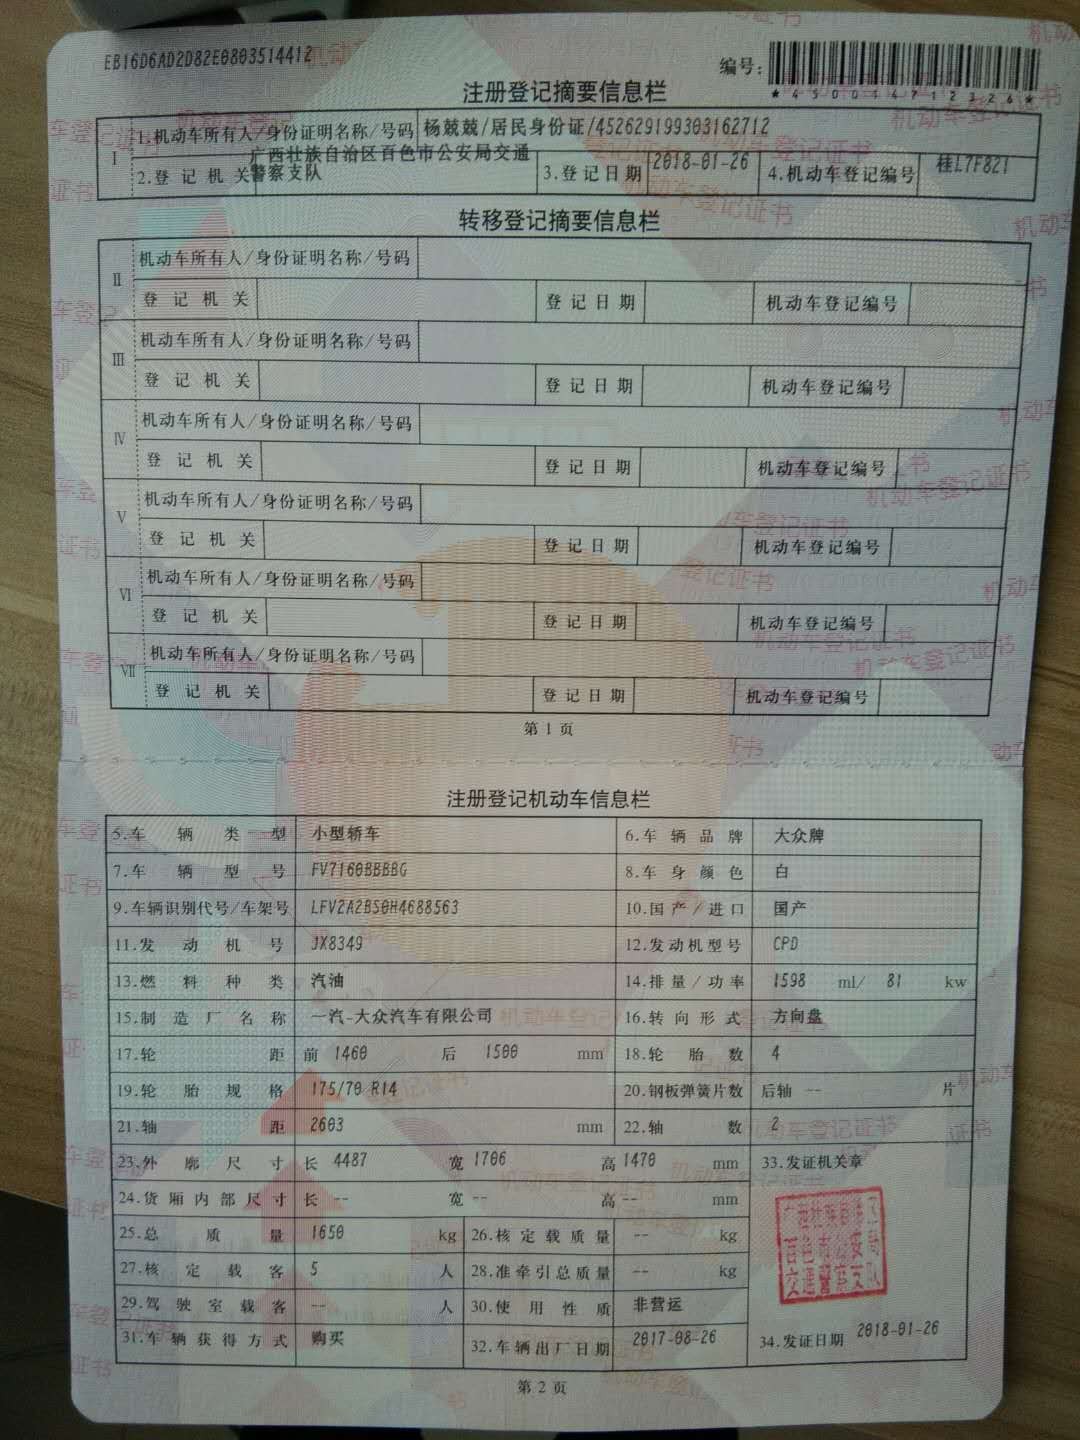 EB16D6AD2D82E0803514412
编号:
*450014712326*
注册登记摘要信息栏
I
1.机动车所有人/身份证明名称/号码 杨兢兢/居民身份证/452629199303162712
2.登记机关 广西壮族自治区百色市公安局交通警察支队 3.登记日期 2018-01-26 4.机动车登记编号 桂L7F821
转移登记摘要信息栏
II 机动车所有人/身份证明名称/号码
登记机关 登记日期 机动车登记编号
III 机动车所有人/身份证明名称/号码
登记机关 登记日期 机动车登记编号
IV 机动车所有人/身份证明名称/号码
登记机关 登记日期 机动车登记编号
V 机动车所有人/身份证明名称/号码
登记机关 登记日期 机动车登记编号
VI 机动车所有人/身份证明名称/号码
登记机关 登记日期 机动车登记编号
VII 机动车所有人/身份证明名称/号码
登记机关 登记日期 机动车登记编号
第1页
注册登记机动车信息栏
5.车辆类型 小型轿车 6.车辆品牌 大众牌
7.车辆型号 FV7160BBBBG 8.车身颜色 白
9.车辆识别代号/车架号 LFV2A2BS0H4688563 10.国产/进口 国产
11.发动机号 JX8349 12.发动机型号 CPD
13.燃料种类 汽油 14.排量/功率 1598 ml/ 81 kw
15.制造厂名称 一汽-大众汽车有限公司 16.转向形式 方向盘
17.轮距 前 1460 后 1500 mm 18.轮胎数 4
19.轮胎规格 175/70 R14 20.钢板弹簧片数 后轴 -- 片
21.轴距 2603 mm 22.轴数 2
23.外廓尺寸 长 4487 宽 1706 高 1470 mm 33.发证机关章
24.货厢内部尺寸 长 -- 宽 -- 高 -- mm
25.总质量 1650 kg 26.核定载质量 -- kg
27.核定载客 5 人 28.准牵引总质量 -- kg
29.驾驶室载客 -- 人 30.使用性质 非营运
31.车辆获得方式 购买 32.车辆出厂日期 2017-08-26 34.发证日期 2018-01-26
第2页